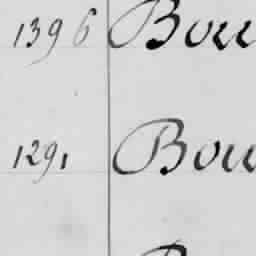 1396 Bou
1291 Bou